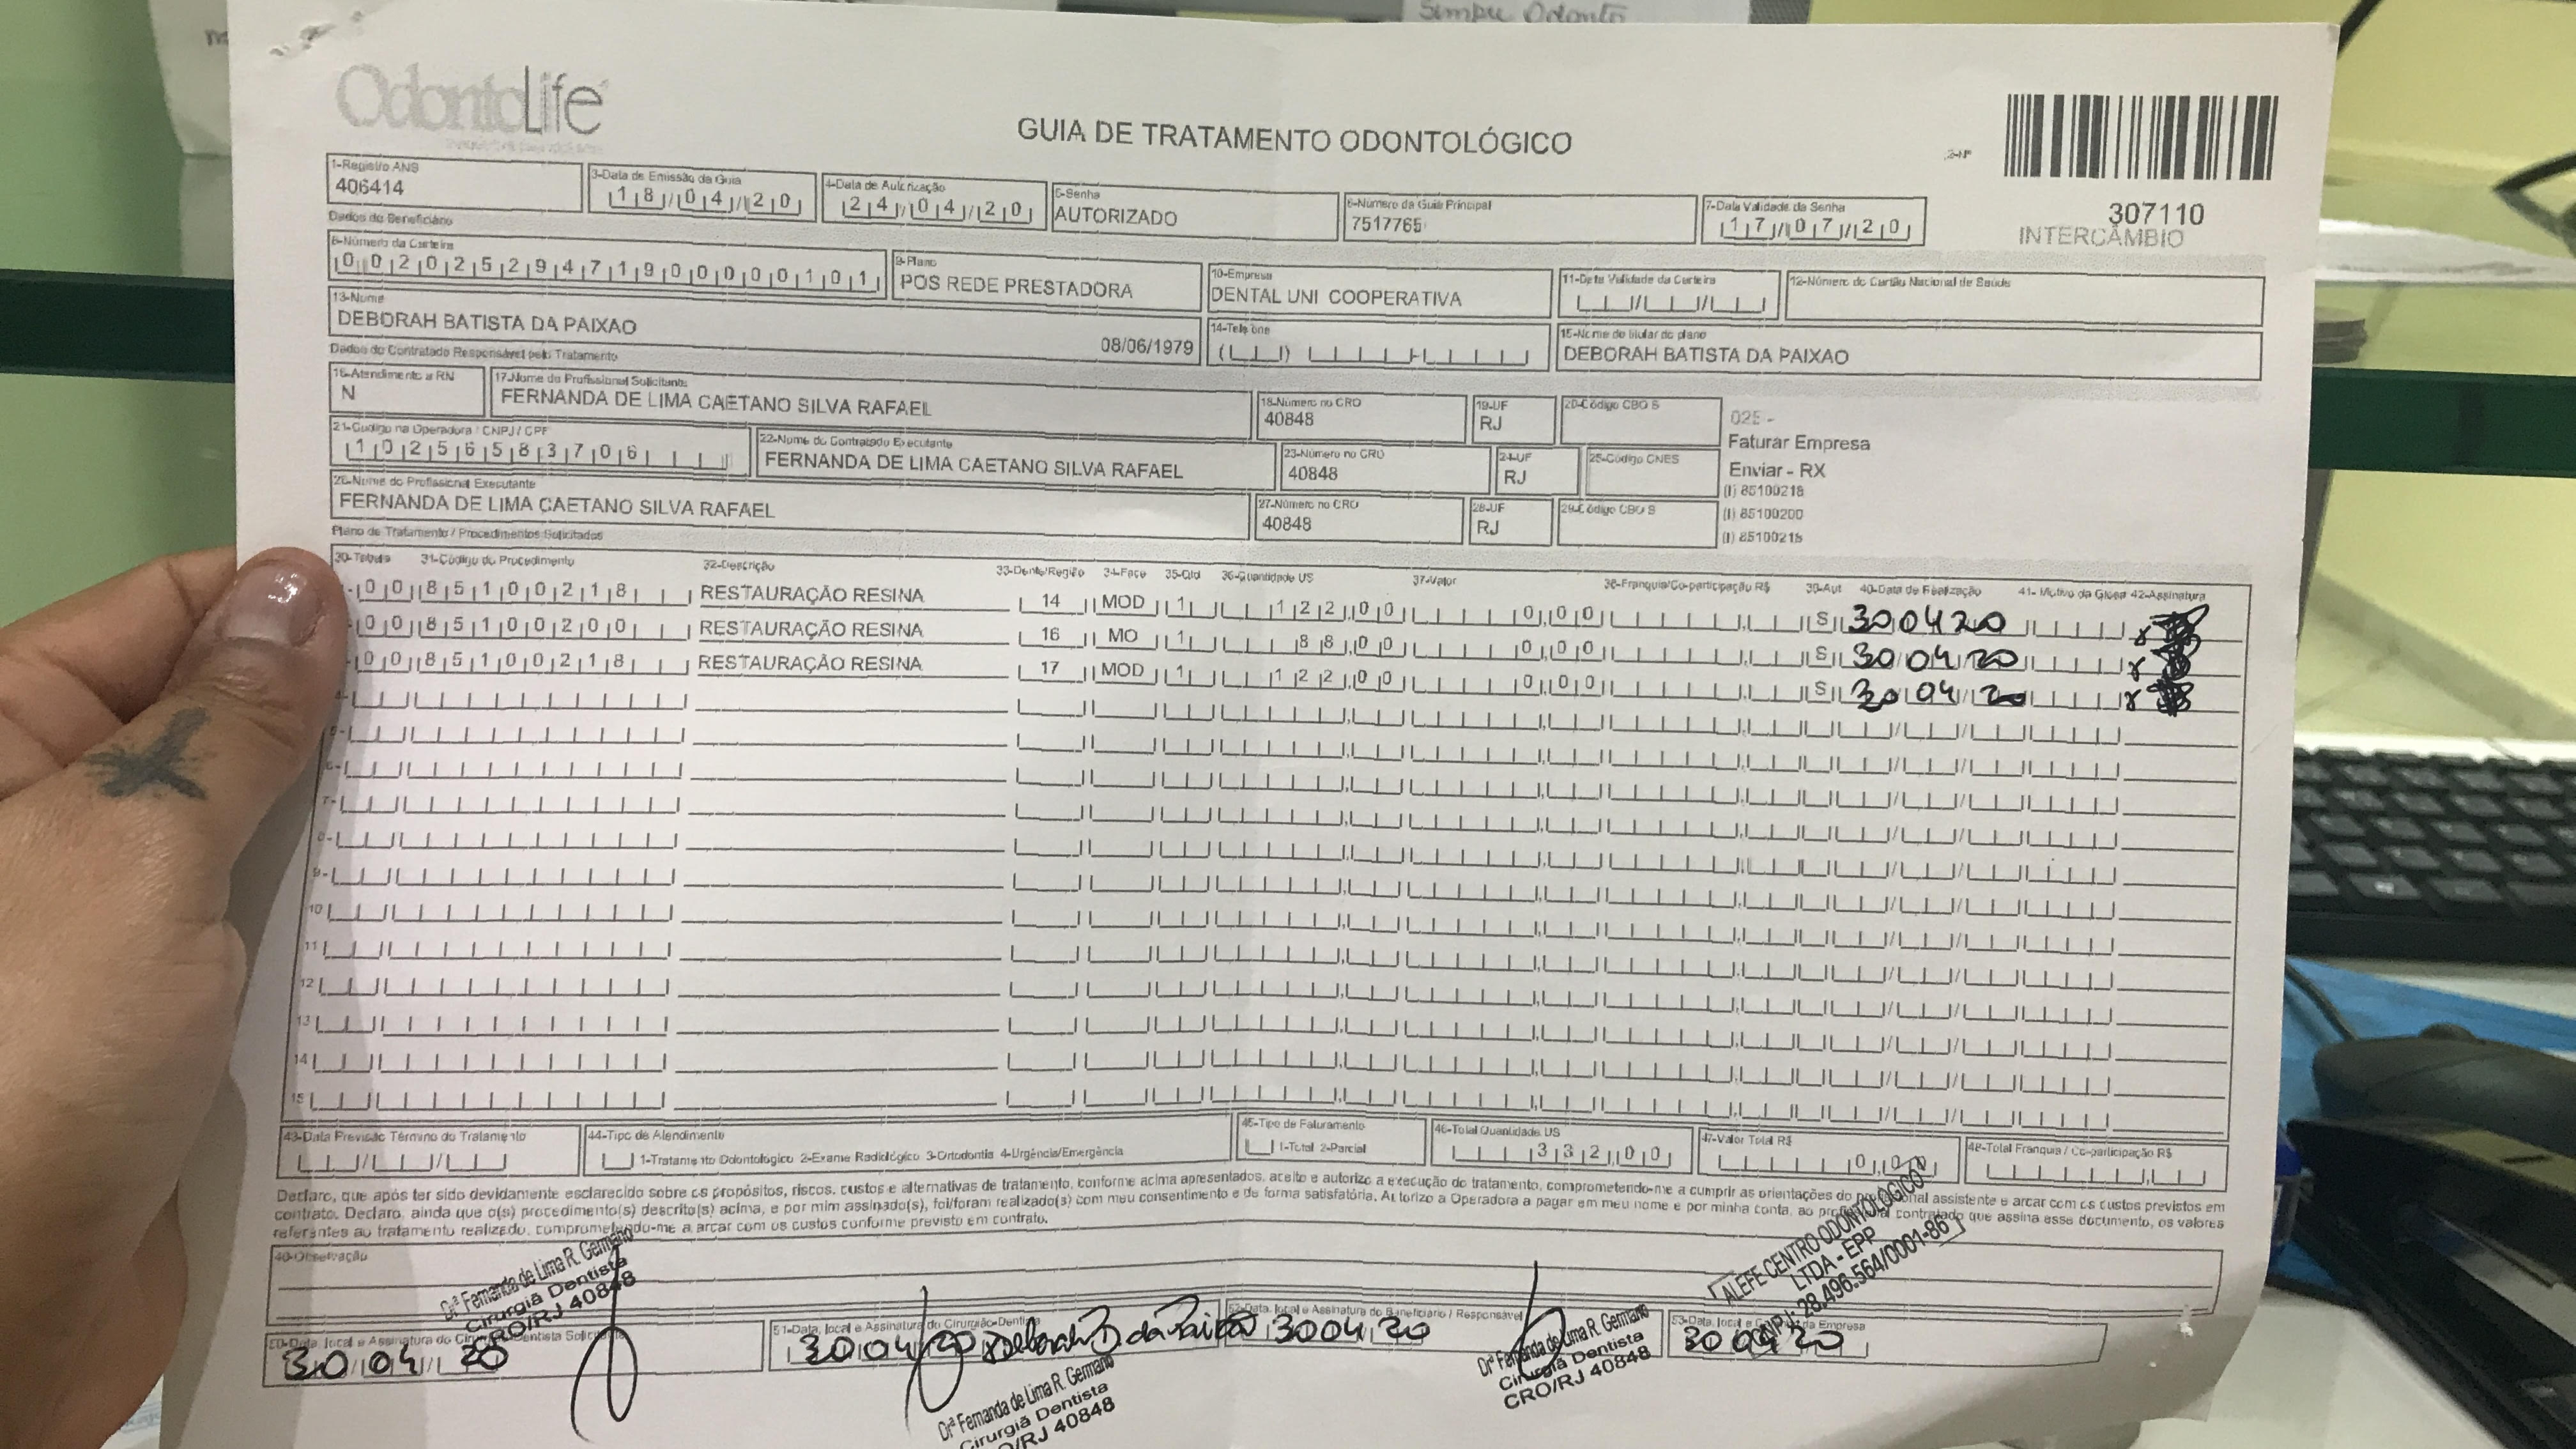 Simpre Odonto
OdontoLife
GUIA DE TRATAMENTO ODONTOLÓGICO
2-Nº
307110
INTERCÂMBIO
1-Registro ANS
406414
3-Data de Emissão da Guia
18/04/20
4-Data de Autorização
24/04/20
5-Senha
AUTORIZADO
6-Número da Guia Principal
7517765
7-Data Validade da Senha
17/07/20
Dados do Beneficiário
8-Número da Carteira
00202529471900000101
9-Plano
POS REDE PRESTADORA
10-Empresa
DENTAL UNI COOPERATIVA
11-Data Validade da Carteira
12-Número do Cartão Nacional de Saúde
13-Nome
DEBORAH BATISTA DA PAIXAO
08/06/1979
14-Telefone
15-Nome do titular do plano
DEBORAH BATISTA DA PAIXAO
Dados do Contratado Responsável pelo Tratamento
16-Atendimento a RN
N
17-Nome do Profissional Solicitante
FERNANDA DE LIMA CAETANO SILVA RAFAEL
18-Número no CRO
40848
19-UF
RJ
20-Código CBO S
025 -
Faturar Empresa
Enviar - RX
(I) 85100218
(I) 85100200
(I) 85100218
21-Código na Operadora / CNPJ / CPF
10256583706
22-Nome do Contratado Executante
FERNANDA DE LIMA CAETANO SILVA RAFAEL
23-Número no CRO
40848
24-UF
RJ
25-Código CNES
26-Nome do Profissional Executante
FERNANDA DE LIMA CAETANO SILVA RAFAEL
27-Número no CRO
40848
28-UF
RJ
29-Código CBO S
Plano de Tratamento / Procedimentos Solicitados
30-Tabela 31-Código do Procedimento 32-Descrição 33-Dente/Região 34-Face 35-Qtd 36-Quantidade US 37-Valor 38-Franquia/Co-participação R$ 39-Aut 40-Data de Realização 41-Motivo da Glosa 42-Assinatura
00 85100218 RESTAURAÇÃO RESINA 14 MOD 1 122,00 0,00 S 30 04 20
00 85100200 RESTAURAÇÃO RESINA 16 MO 1 88,00 0,00 S 30/04/20
00 85100218 RESTAURAÇÃO RESINA 17 MOD 1 122,00 0,00 S 30/04/20
4-
5-
6-
7-
8-
9-
10
11
12
13
14
15
43-Data Previsão Término do Tratamento
44-Tipo de Atendimento
1-Tratamento Odontológico 2-Exame Radiológico 3-Ortodontia 4-Urgência/Emergência
45-Tipo de Faturamento
1-Total 2-Parcial
46-Total Quantidade US
332,00
47-Valor Total R$
0,00
48-Total Franquia / Co-participação R$
Declaro, que após ter sido devidamente esclarecido sobre os propósitos, riscos, custos e alternativas de tratamento, conforme acima apresentados, aceito e autorizo a execução do tratamento, comprometendo-me a cumprir as orientações do profissional assistente e arcar com os custos previstos em
contrato. Declaro, ainda que o(s) procedimento(s) descrito(s) acima, e por mim assinado(s), foi/foram realizado(s) com meu consentimento e de forma satisfatória. Autorizo a Operadora a pagar em meu nome e por minha conta, ao profissional contratado que assina esse documento, os valores
referentes ao tratamento realizado, comprometendo-me a arcar com os custos conforme previsto em contrato.
49-Observação
Drª Fernanda de Lima R. Germano
Cirurgiã Dentista
CRO/RJ 40848
ALEFE CENTRO ODONTOLÓGICO
LTDA - EPP
CNPJ: 28.496.564/0001-86
50-Data, local e Assinatura do Cirurgião-Dentista Solicitante
30/04/20
51-Data, local e Assinatura do Cirurgião-Dentista
30 04 20 Deborah B da Paixão
52-Data, local e Assinatura do Beneficiário / Responsável
30 04 20
53-Data, local e Carimbo da Empresa
30 04 20
Drª Fernanda de Lima R. Germano
Cirurgiã Dentista
CRO/RJ 40848
Drª Fernanda de Lima R. Germano
Cirurgiã Dentista
CRO/RJ 40848